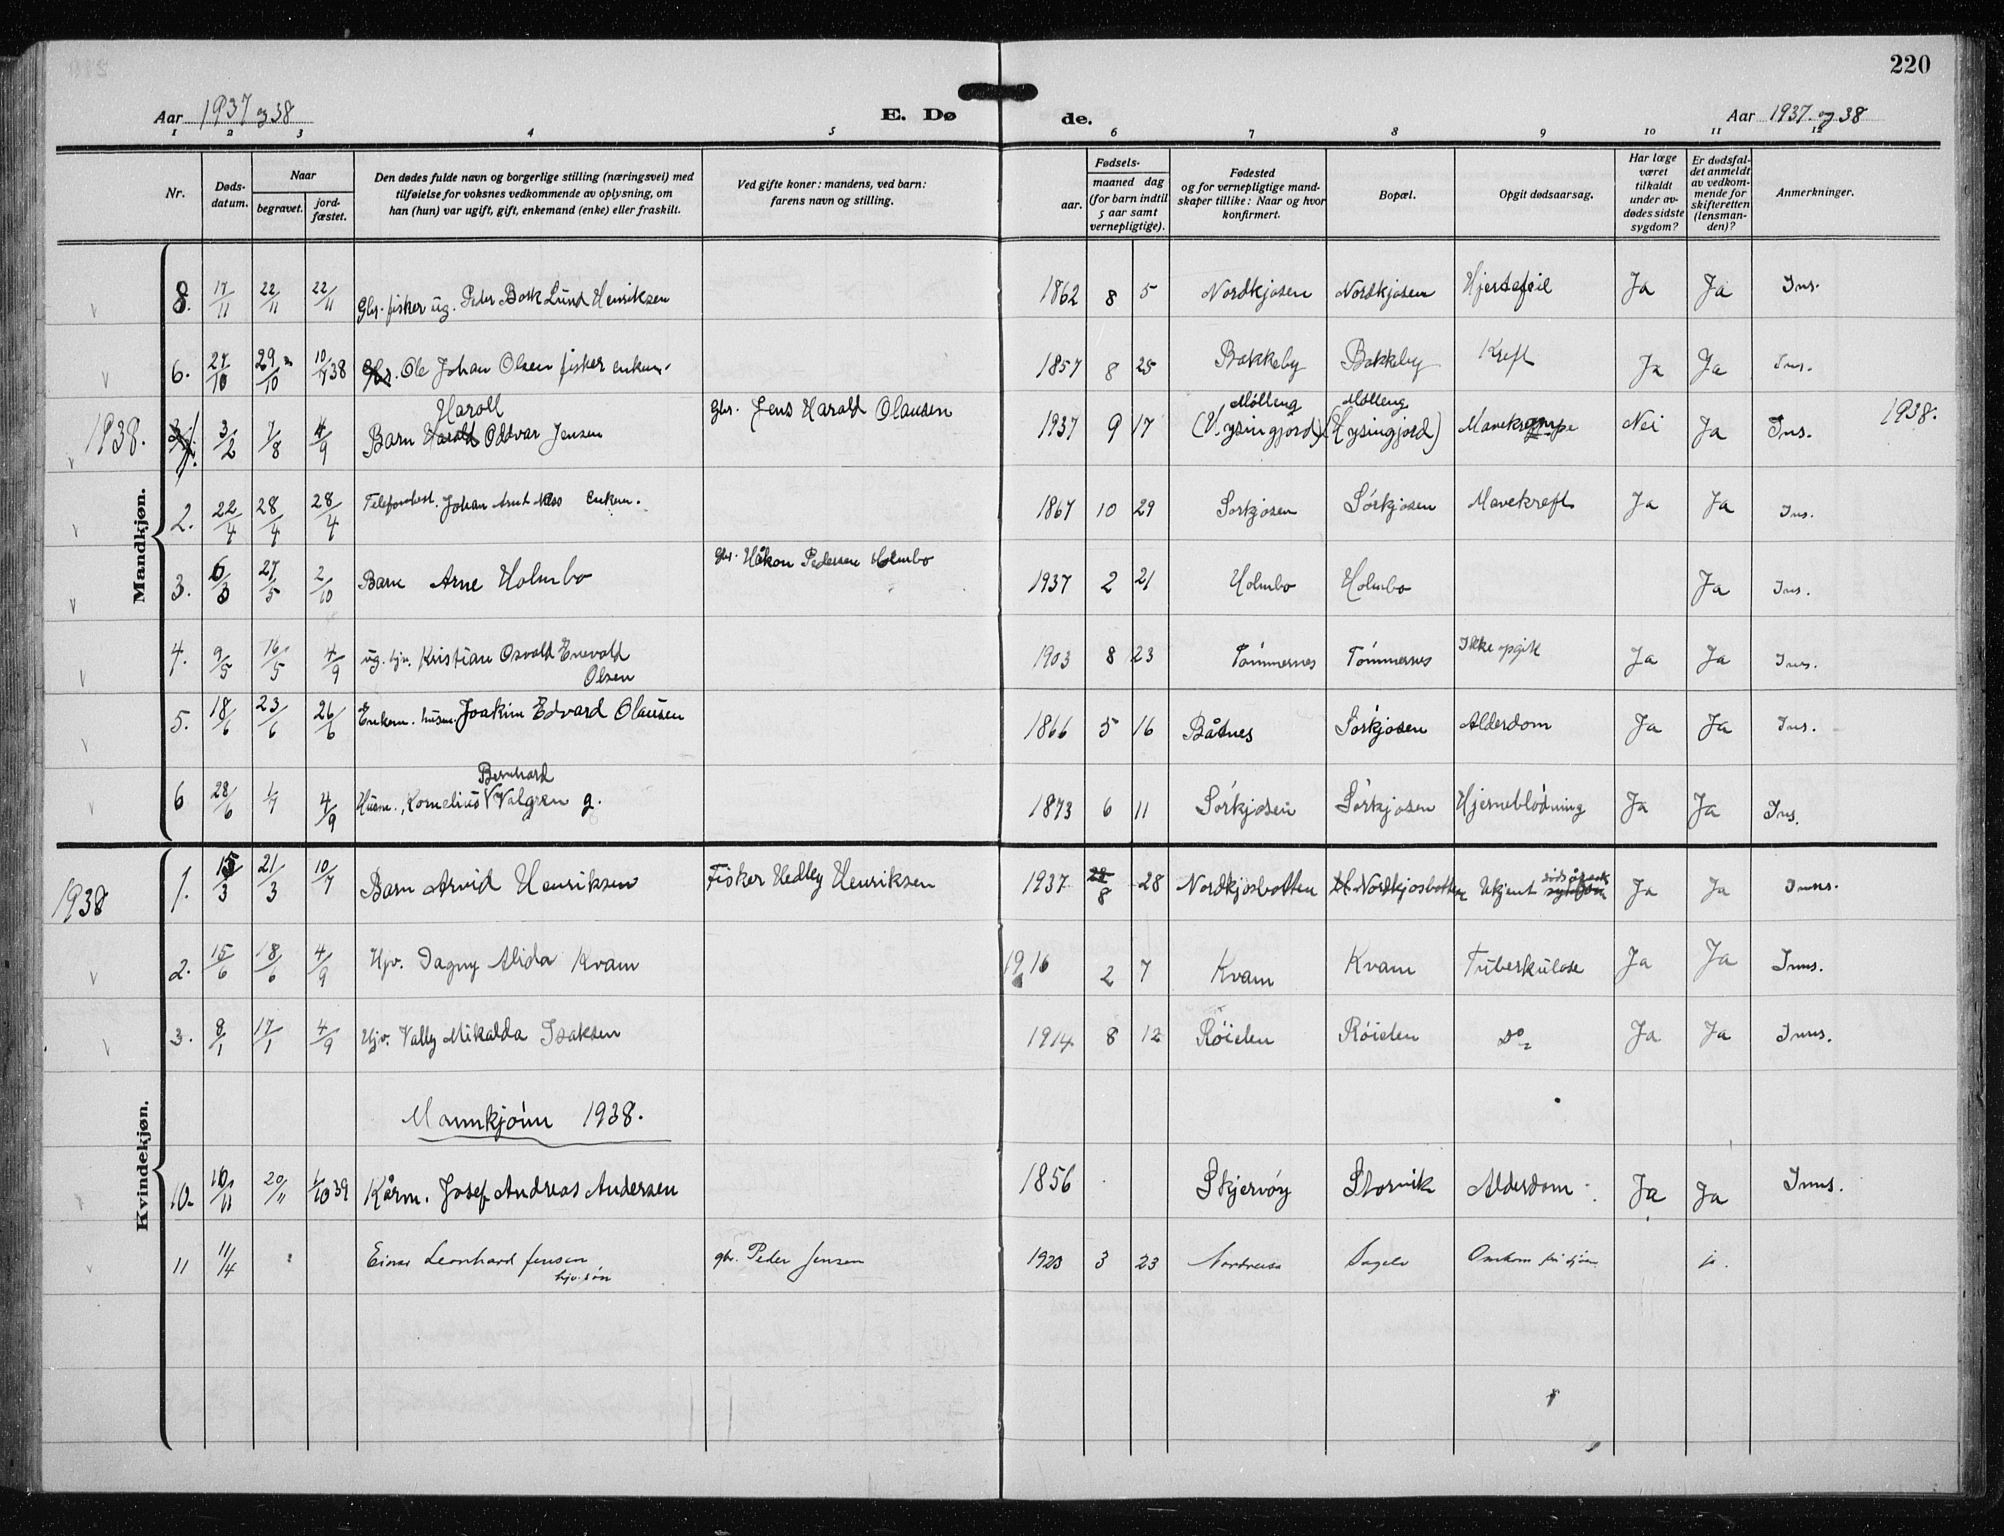 220
Aar 1937 og 38 E. Dø de. Aar 1937 og 38
1 2 3 4 5 6 7 8 9 10 11 12
Nr. Døds-datum. Naar begravet. jord-fæstet. Den dødes fulde navn og borgerlige stilling (næringsvei) med tilføielse for voksnes vedkommende av oplysning, om han (hun) var ugift, gift, enkemand (enke) eller fraskilt. Ved gifte koner: mandens, ved barn: farens navn og stilling. Fødsels- aar. maaned dag (for barn indtil 5 aar samt vernepligtige). Fødested og for vernepligtige mand-skaper tillike: Naar og hvor konfirmert. Bopæl. Opgit dødsaarsag. Har læge været tilkaldt under av-dødes sidste sygdom? Er dødsfal-det anmeldt av vedkom-mende for skifteretten (lensman-den)? Anmerkninger.
Mandkjøn.
8. 17/11 22/11 22/11 Gbr. fisker ug. Peder Bork Lund Henriksen 1862 8 5 Nordkjosen Nordkjosen Hjertefeil Ja Ja Ins.
6. 27/10 29/10 10/7 38 Ole Johan Olsen fisker enkem. 1857 8 25 Bakkeby Bakkeby Kreft Ja Ja Inns.
1938. 1. 3/2 7/8 4/9 Barn Harall Oddvar Jensen Gbr. Jens Harald Olausen 1937 9 17 Mölleng Mölleng Nei Ja Inns. 1938.
2. 22/4 28/4 28/4 Telefonbest. Johan Arnt enkem. 1867 10 29 Sorkjosen Sörkjosen Mavekreft Ja Ja Ins.
3. 27/5 2/10 Barn Arne Holmbo Gbr. Håkon Pedersen Holmbo 1937 2 21 Holmbo Holmbo Ja Ins.
4. 9/5 16/5 4/9 ug. hjv. Kristian Osvald Enevald Olsen 1903 8 23 Tömmernes Tömmernes Ikke opgit Ja Ja Ins.
5. 18/6 23/6 26/6 Enkem. husm. Joakim Edvard Olausen 1866 5 16 Båtnes Sörkjosen Alderdom Ja Ja Ins.
6 28/6 1/7 4/9 Husm. Kornelius Bernhard Valgren g. 1873 6 11 Sörkjosen Sörkjosen Hjerneblödning Ja Ja Ins.
Kvindekjøn.
1938 1. 15/3 21/3 10/7 Barn Arvid Henriksen Fisker Hedley Henriksen 1937 8 28 Nordkjosbotten Nordkjosbotten Ukjent Ja Ja Inns.
2. 15/6 18/6 4/9 Hjv. Dagny Alida Kvam 1916 2 7 Kvam Kvam Tuberkulose Ja Ja Inns.
3. 8/1 17/1 4/9 Hjv. Vally Mikalda Isaksen 1914 8 12 Röielen Röielen Do Ja Ja Inns.
Mannkjönn 1938.
10. 10/11 20/11 1/10 39 Kårm. Josef Andreas Andersen 1856 Skjervöy Storvik Alderdom Ja Ja Inns.
11 11/4 Einar Leonhard Jensen hjv. sön gbr. Peder Jensen 1923 3 23 Nordreisa Omkom på sjöen ja.